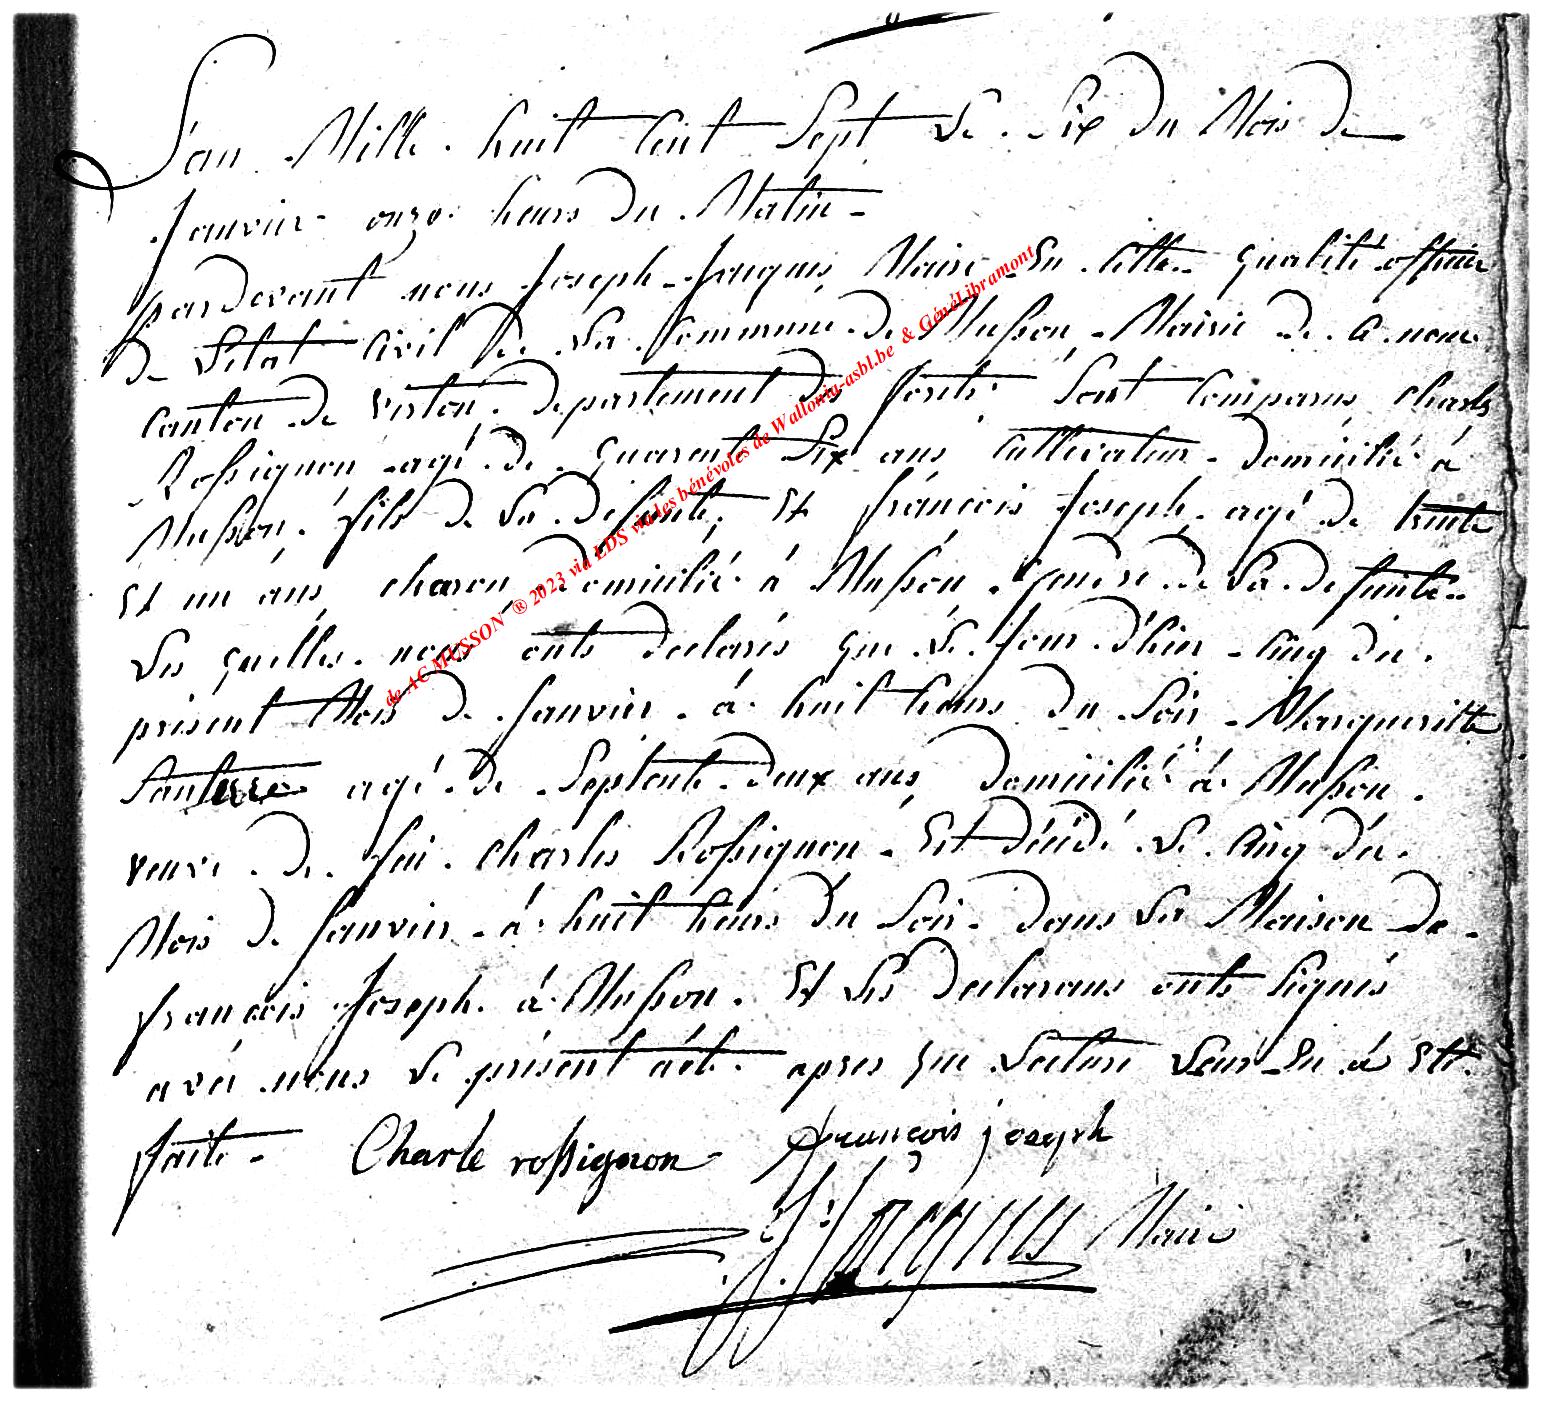 L'an Mille huit Cent Sept Le Six Du Mois De
Janvier onze heurs Du Matin
pardevant nous Joseph Jacques Maire En Cette qualité officier
De L'etat Civil De La Commune De Musson Mairie De Ce nom
Canton De virton, Departement Des forets Sont Comparus Charles
Rossignon agé De quarente Six ans Cultivateur Domicilié à
Musson fils De La Defunte, Et françois Joseph agé De trente
Et un ans charon Domicilié à Musson gendre De La Defunte
Les quelles nous onts declarés que Le Jour D'hier cinq Du
présent Mois De Janvier à huit heurs Du Soir Margueritte
Santerre agé De Septente Deux ans Domicilié à Musson
veuve De feu Charles Rossignon Est Décédé Le Cinq Du
Mois De Janvier à huit heurs Du Soir Dans La Maison De
françois Joseph à Musson. Et Les Declarans onts Signés
avec nous Le présent acte apres que Lecture Leur En à Eté
faite Charle rossignon françois joseph
J: Jacques Maire
de AC MUSSON ® 2023 via LDS via les bénévoles de Wallonia-asbl.be & GénéLibramont